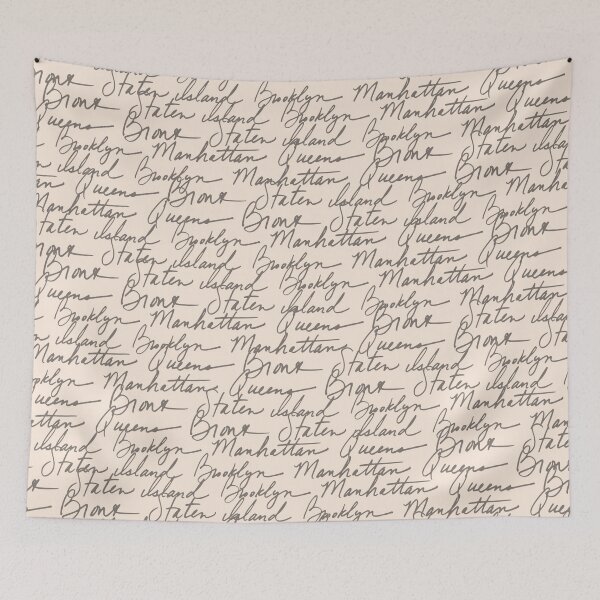 Staten island Brooklyn Manhattan Queens
Bronx Staten island Brooklyn Manhattan Queens
Queens Bronx Staten island Brooklyn Manhattan
Brooklyn Manhattan Queens Bronx Staten
island Brooklyn Manhattan Queens Bronx
Queens Bronx Staten island Brooklyn
Manhattan Queens Bronx Staten island Brooklyn
Staten island Brooklyn Manhattan Queens Bronx
Staten island Brooklyn Manhattan Queens
Bronx Staten island Brooklyn Manhattan Queens
Queens Bronx Staten island Brooklyn Manhattan
Brooklyn Manhattan Queens Bronx Staten
island Brooklyn Manhattan Queens Bronx
Manhattan Queens Bronx Staten island Brooklyn
Manhattan Queens Bronx Staten island
Bronx Staten island Brooklyn Manhattan
Queens Bronx Staten island Brooklyn
island Brooklyn Manhattan Queens Bronx
Staten island Brooklyn Manhattan Queens
Bronx Staten island Brooklyn Manhattan Queens